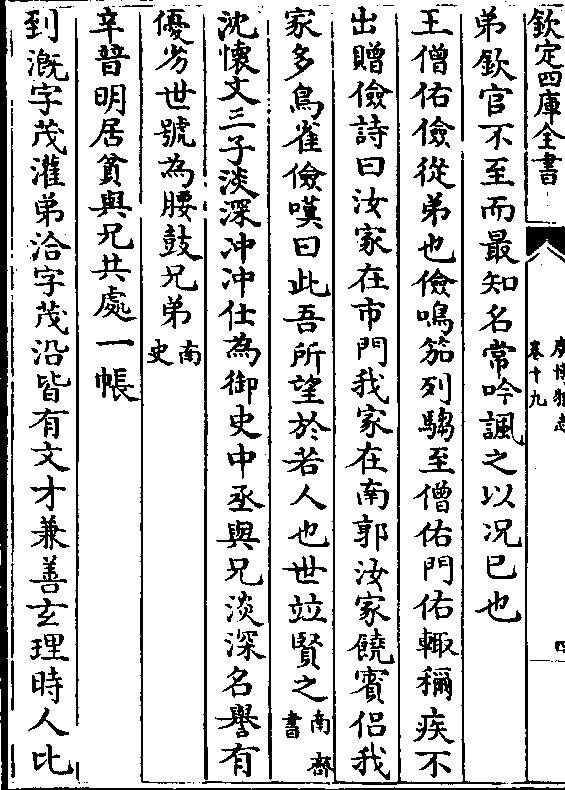 欽定四庫全書
卷十九
四
弟欽官不至而最知名常吟諷之以况已也
王僧佑儉從弟也儉鳴笳列騶至僧佑門佑輙稱疾不
出贈儉詩曰汝家在市門我家在南郭汝家饒賓侣我
家多鳥雀儉嘆曰此吾所望於若人也世竝賢之南齊書
沈懷文三子淡深冲冲仕為御史中丞與兄淡深名譽有
優劣世號為腰鼓兄弟南史
辛普明居貧與兄共處一帳
到溉字茂灌弟洽字茂沿皆有文才兼善玄理時人比